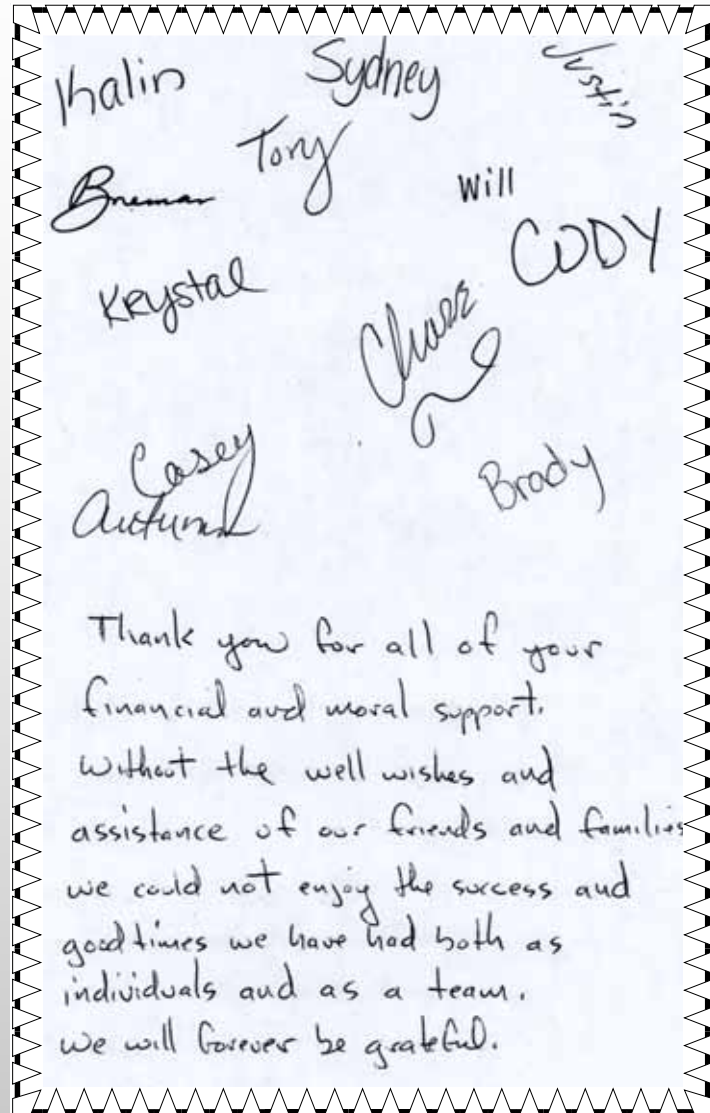 Kalin
Sydney
Justin
Tory
Will
CODY
Krystal
Chase
Casey
Brady
Autumn
Thank you for all of your
financial and moral support.
Without the well wishes and
assistance of our friends and families
we could not enjoy the success and
good times we have had both as
individuals and as a team.
we will forever be grateful.